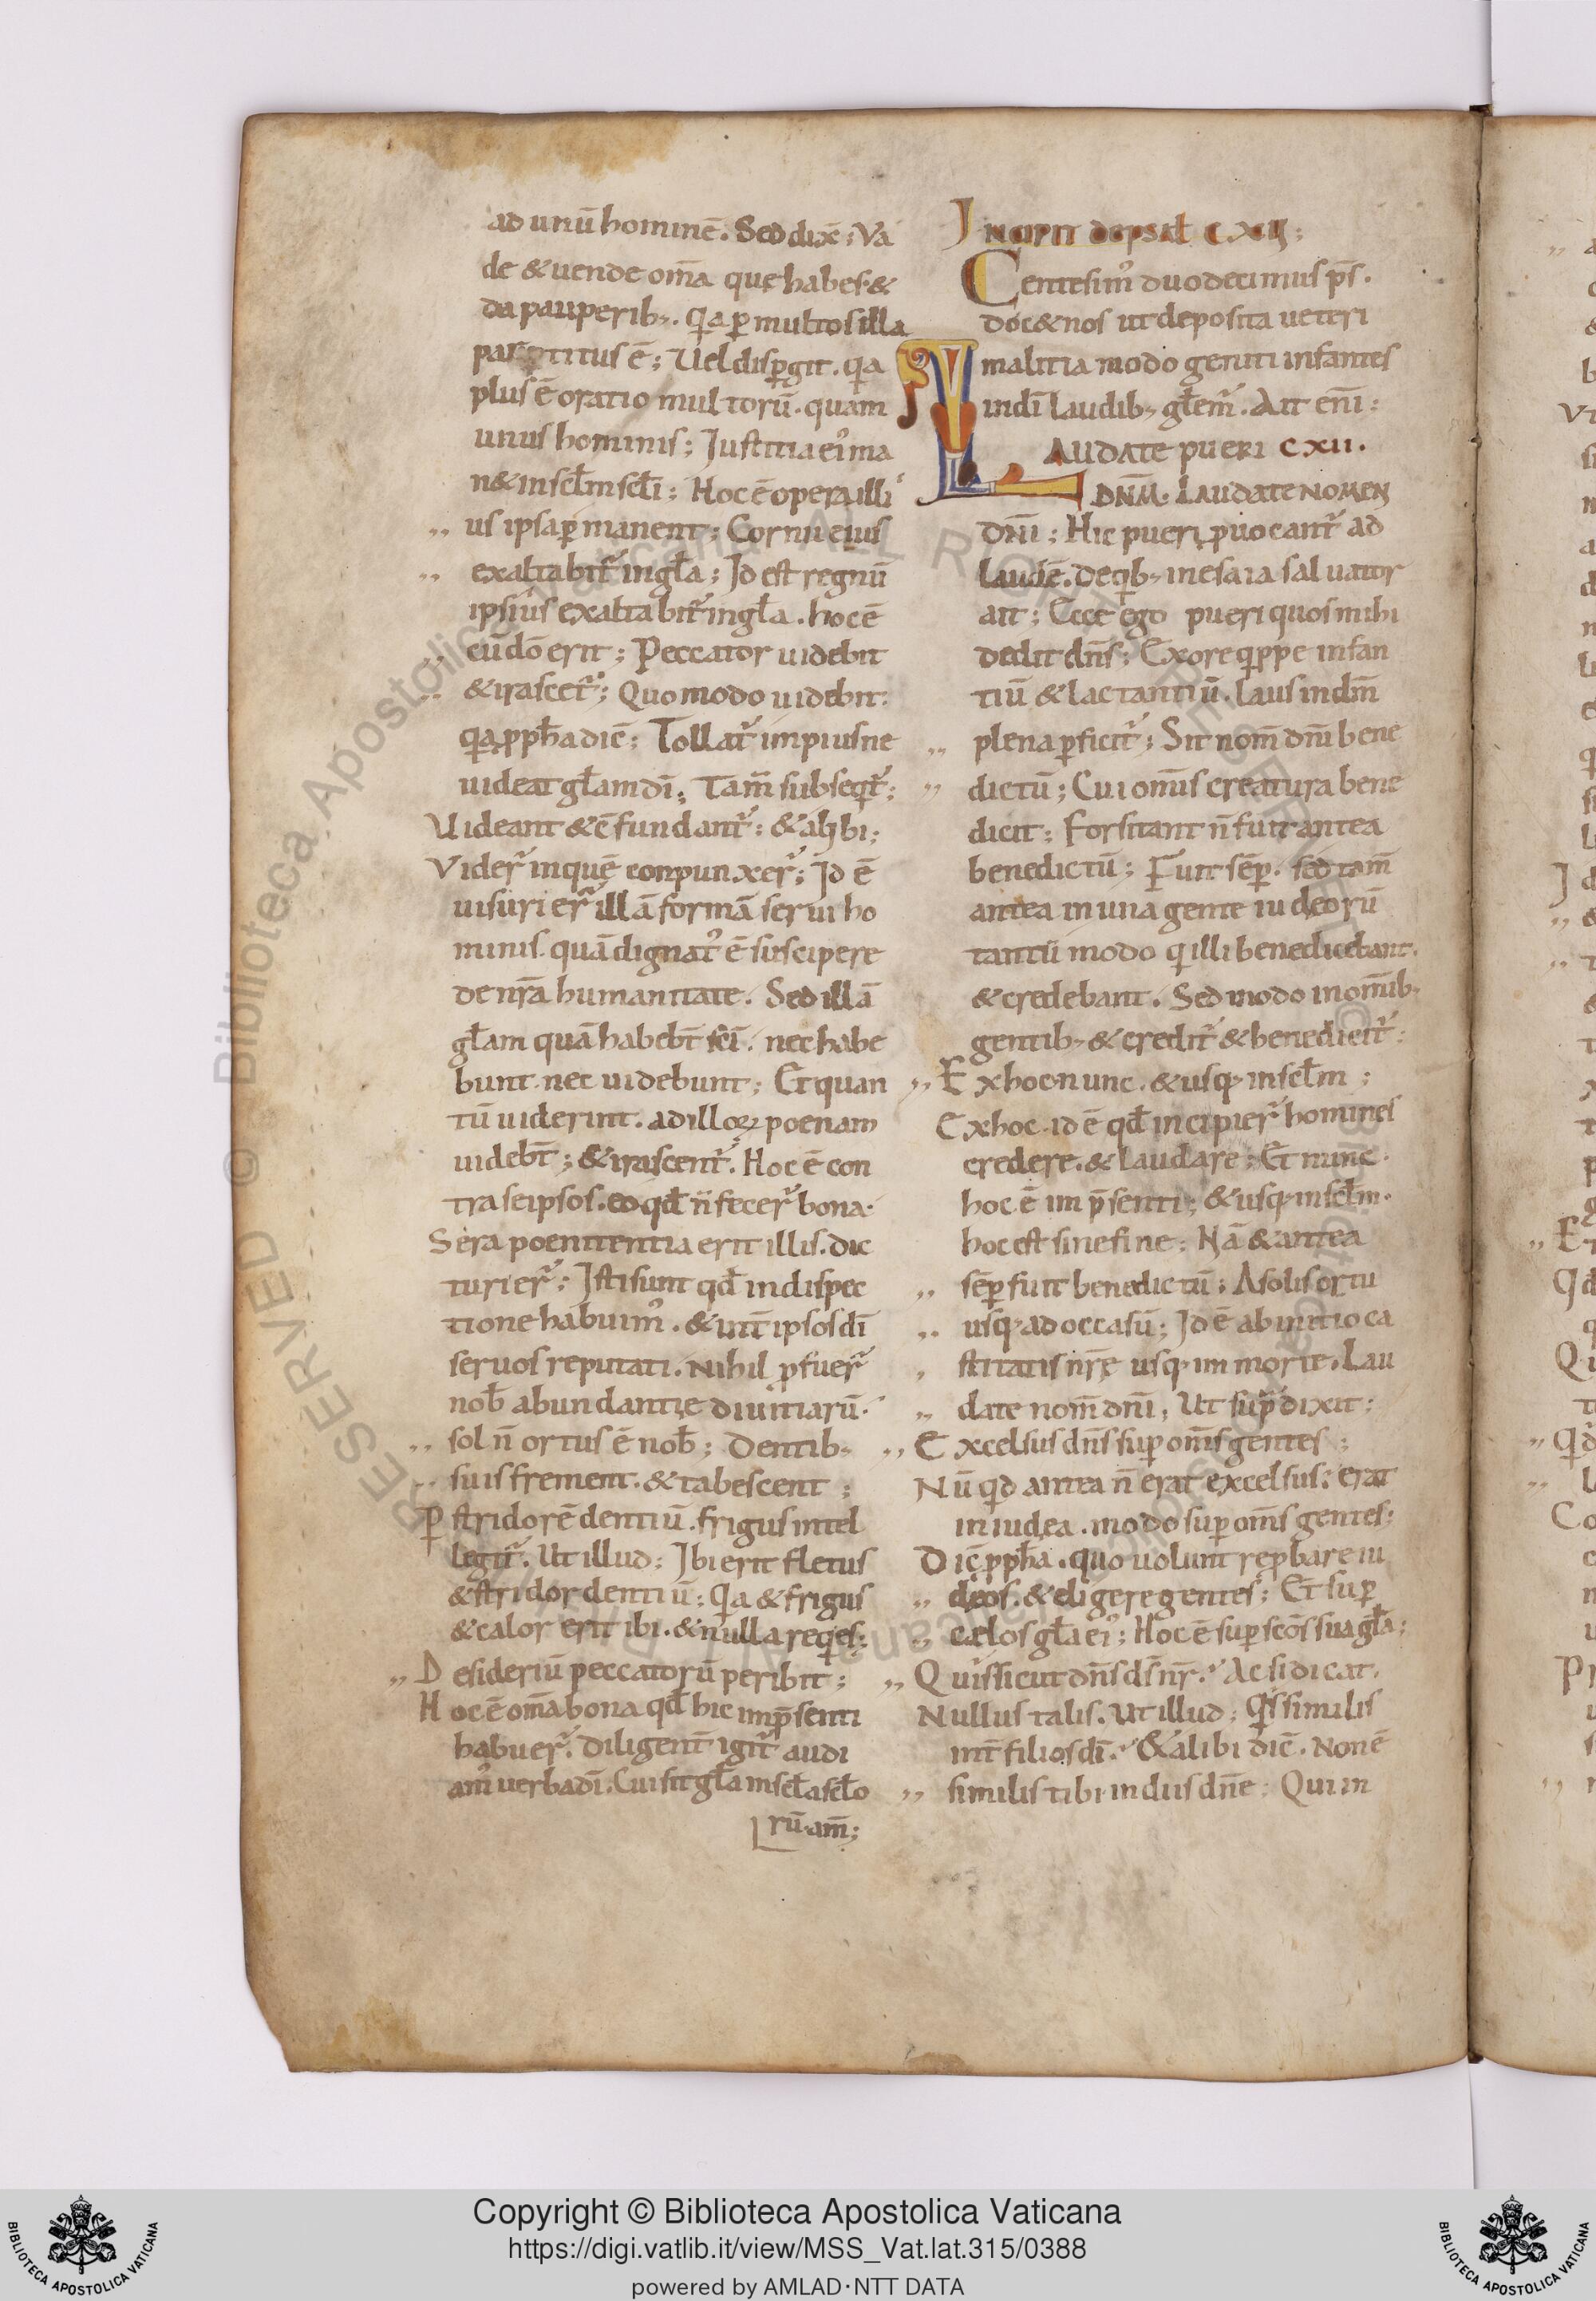 ad unū hominē. Sed dix̄; Va
de & uende om̄a quę habes. &
da pauperib;. qa ꝑ multos illa
partitus ē; Uel disꝑgit. qa
plus ē oratio multorū. quam
unus hominis; Justitia ei᾽ ma
n& in sc̄lm sc̄li; Hoc ē opera illi᾽
„ us ipsa ꝑmanent; Cornu eius
„ exaltabit᷑ in gl̄a; Id est regnū
ipsius exaltabit᷑ in gl̄a. hoc ē
„ cū dō erit; Peccator uidebit
„ & irascet᷑; Quomodo uidebit.
qa ꝓph̄a dic̄; Tollat᷑ impius ne
uideat gl̄am dī; Tam̄ subseqt᷑;
Uideant & c̄fundant᷑: & alibi;
Vider᷑ in quē conpunxer᷑; Id ē
uisuri er᷑ illā formā serui ho
minis. quā dignat᾽ ē suscipere
de nr̄a humanitate. Sed illā
gl̄am quā habeb̄t sc̄i. nec habe
bunt. nec uidebunt; Et quan
tū uiderint. ad illoꝝ poenam
uideb̄t; & irascent᷑. Hoc ē con
tra seipsos. eo qd̄ n̄ fecer᷑ bona.
Sera poenitentia erit illis. dic
turi er᷑; Isti sunt qd̄ in dispec
tione habuim᾽. & int̄ ipsos dī
seruos reputati. Nihil ꝓfuer᷑
nob̄ abundantię diuitiarū.
„ sol n̄ ortus ē nob̄; Dentib;
„ suis frement. & tabescent;
ꝑ stridorē dentiū. frigus intel
legit᷑. Ut illud: Ibi erit fletus
& stridor dentiū; Qa & frigus
& calor erit ibi. & nulla reqes;
„ Desideriū peccatorū peribit;
Hoc ē om̄a bona qd̄ hic in p̄senti
habuer᷑. diligent̄ igit᷑ audi
am᾽ uerba dī. Cui sit gl̄a in sc̄la sc̄lo
rū. am̄;
Incipit de psal̄ CXII;
Centesim᾽ duodecimus ps̄.
doc& nos ut deposita ueteri
malitia modo geniti infantes
in dī laudib; gl̄em᷑. Ait en̄i:
LAUDATE PUERI CXII.
DN̄M. LAUDATE NOMEN
DN̄I; Hic pueri ꝓuocant᷑ ad
laudē. de qib; in esaia saluator
ait; Ecce ego pueri quos mihi
dedit dn̄s; Ex ore qppe infan
tiū & lactantiū. laus in dm̄
„ plena ꝑficit᷑; Sit nom̄ dn̄i bene
„ dictū; Cui omīs creatura bene
dicit; Forsitant n̄ fuit antea
benedictū; Fuit sēꝑ. sed tam̄
antea in una gente iudeorū
tantū modo q illi benedicebant.
& credebant. Sed modo in om̄ib;
gentib; & credit᷑ & benedicit᷑:
„ Ex hoc nunc. & usq; in sc̄lm;
Ex hoc. id ē qd̄ incipier᷑ homines
credere. & laudare; Et nunc.
hoc ē im p̄senti; & usq; in sc̄lm.
hoc est sine fine; Nā & antea
„ sēꝑ fuit benedictū; A solis ortu
„ usq; ad occasū; Id ē ab initio ca
„ stitatis nr̄ę usq; im morte. Lau
„ date nom̄ dn̄i; Ut supra dixit;
„ Excelsus dn̄s suꝑ om̄s gentes;
Nū qd antea n̄ erat excelsus; erat
in iudea. modo suꝑ om̄s gentes;
Dic̄ ꝓph̄a. quo uolunt reꝓbare iu
„ deos. & eligere gentes; Et suꝑ
„ cęlos gl̄a ei᾽; Hoc ē suꝑ sc̄os sua gl̄a;
„ Quis sicut dn̄s ds̄ nr̄. Ac si dicat.
Nullus talis. Ut illud; Qs similis
int̄ filios dī. & alibi dic̄. Non ē
„ similis tibi in diis dn̄e; Qui in
Copyright © Biblioteca Apostolica Vaticana
https://digi.vatlib.it/view/MSS_Vat.lat.315/0388
powered by AMLAD·NTT DATA
BIBLIOTECA APOSTOLICA VATICANA
BIBLIOTECA APOSTOLICA VATICANA